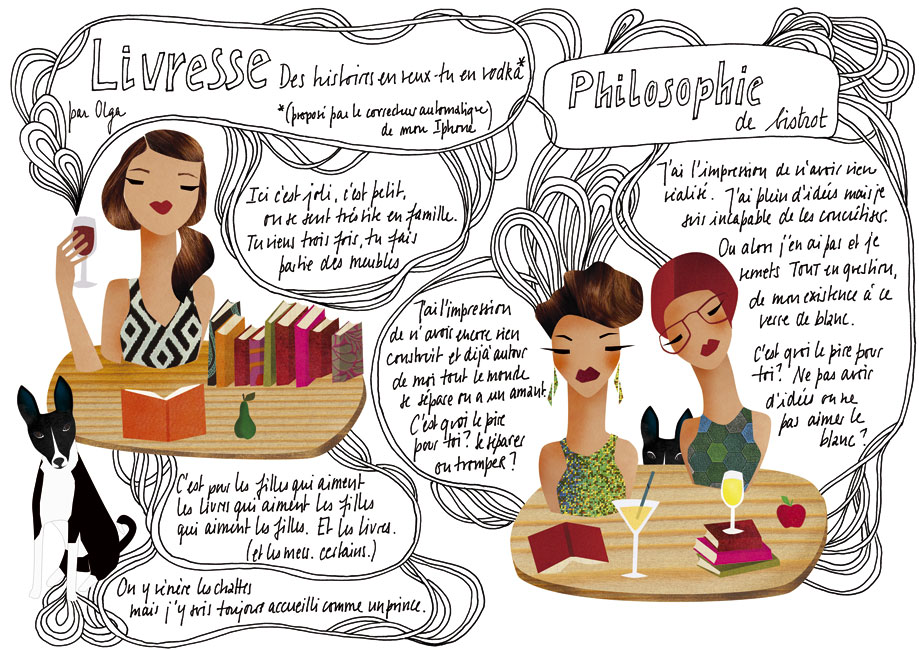 Livresse
Des histoires en veux-tu en vodka*
par Olga
*(proposé par le correcteur automatique)
de mon Iphone
Ici c'est joli, c'est petit,
on se sent très vite en famille.
Tu viens trois fois, tu fais
partie des meubles
C'est pour les filles qui aiment
les livres qui aiment les filles
qui aiment les filles. Et les livres.
(et les mecs. certains.)
On y vénère les chattes
mais j'y suis toujours accueilli comme un prince.
Philosophie
de bistrot
J'ai l'impression
de n'avoir encore rien
construit et déjà autour
de moi tout le monde
se sépare ou a un amant.
C'est quoi le pire
pour toi? se séparer
ou tromper?
J'ai l'impression de n'avoir rien
réalisé. J'ai plein d'idées mais je
suis incapable de les concrétiser.
Ou alors j'en ai pas et je
remets TOUT en question,
de mon existence à ce
verre de blanc.
C'est quoi le pire pour
toi? Ne pas avoir
d'idées ou ne
pas aimer le
blanc?